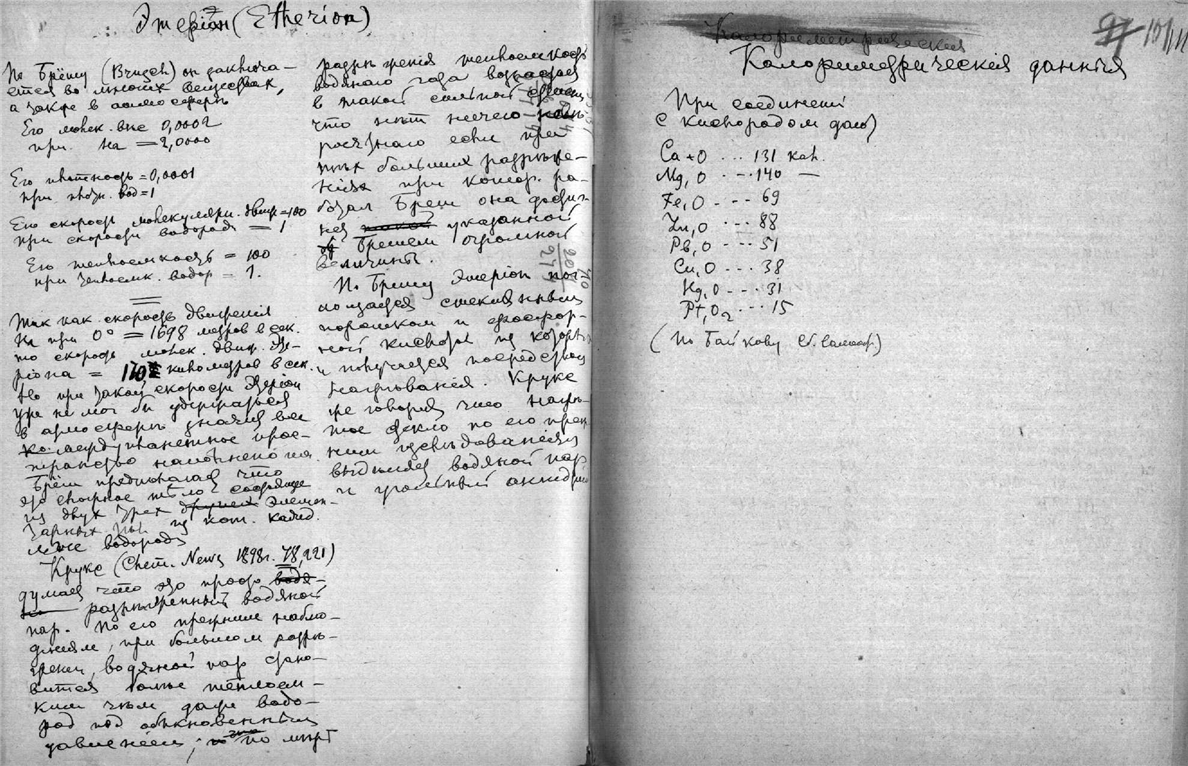 Этеріон (Etherion)
По Брёшу (Brusch) он заключа-
ется во многих веществах,
а также в атмосфере
Его молек. вес 0,0002
при. На = 2,0000
Его плотность = 0,0001
при плотн. вод = 1
Его скорость молекулярн. движ = 100
при скорости водорода = 1
Его теплоемкость = 100
при теплоемк. водор = 1.
Так как скорость движенія
На при 0° = 1698 метров в сек.
то скорость молек. движ. эте-
ріона = 170 километров в сек.
Но при такой скорости Этеріон
уже не мог бы удержаться
в атмосфере значит все
междупланетное прос-
транство наполнено им
Брёш предполагал что
это сложное тело состоящее
из двух трех других элемен-
тарных из кот. каждый
легче водорода
Крукс (Chem. News 1898г. 78, 221)
думает что это просто водя-
разреженный водяной
пар. По его прежним наблю-
деніям, при большом разре-
женіи, водяной пар стано-
вится более теплоем-
ким чем даже водо-
род под обыкновенным
давленіем; что по мере
разреженія теплоемкость
водяного газа возрастает
в такой сильной степени
что нет ничего
если при
тех больших разреже-
ніях при котор. ра-
ботал Бреш она достиг-
нет такой указанной
Брешем огромной
величины.
По Брешу Этеріон пог-
лощается стеклянным
порошком и фосфор-
ной кислотой из которых
и получается посредством
нагреванія. Крукс
же говорит что нагре-
тое стекло по его преж
ним изследованіям
выделяет водяной пар
и угольный ангидрид
Калориметрическія
Калориметрическія данныя
97 101
При соединеніи
с кислородом дают
Ca + O ... 131 кал.
Mg, O --- 140 —
Fe, O ---- 69
Zn, O --- 88
Pb, O --- 51
Cu, O --- 38
Hg, O ---- 31
Pt, O2 --- 15
(По Байкову